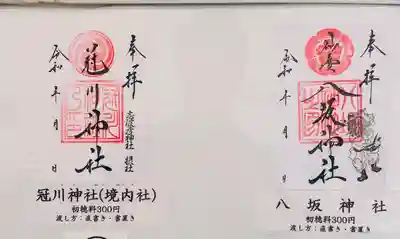 奉拝
冠川神社
志波彦神社 摂社
令和 年 月 日
冠川神社(境内社)
初穂料300円
渡し方:直書き・書置き
奉拝
八坂神社
令和 年 月 日
八坂神社
初穂料300円
渡し方:直書き・書置き